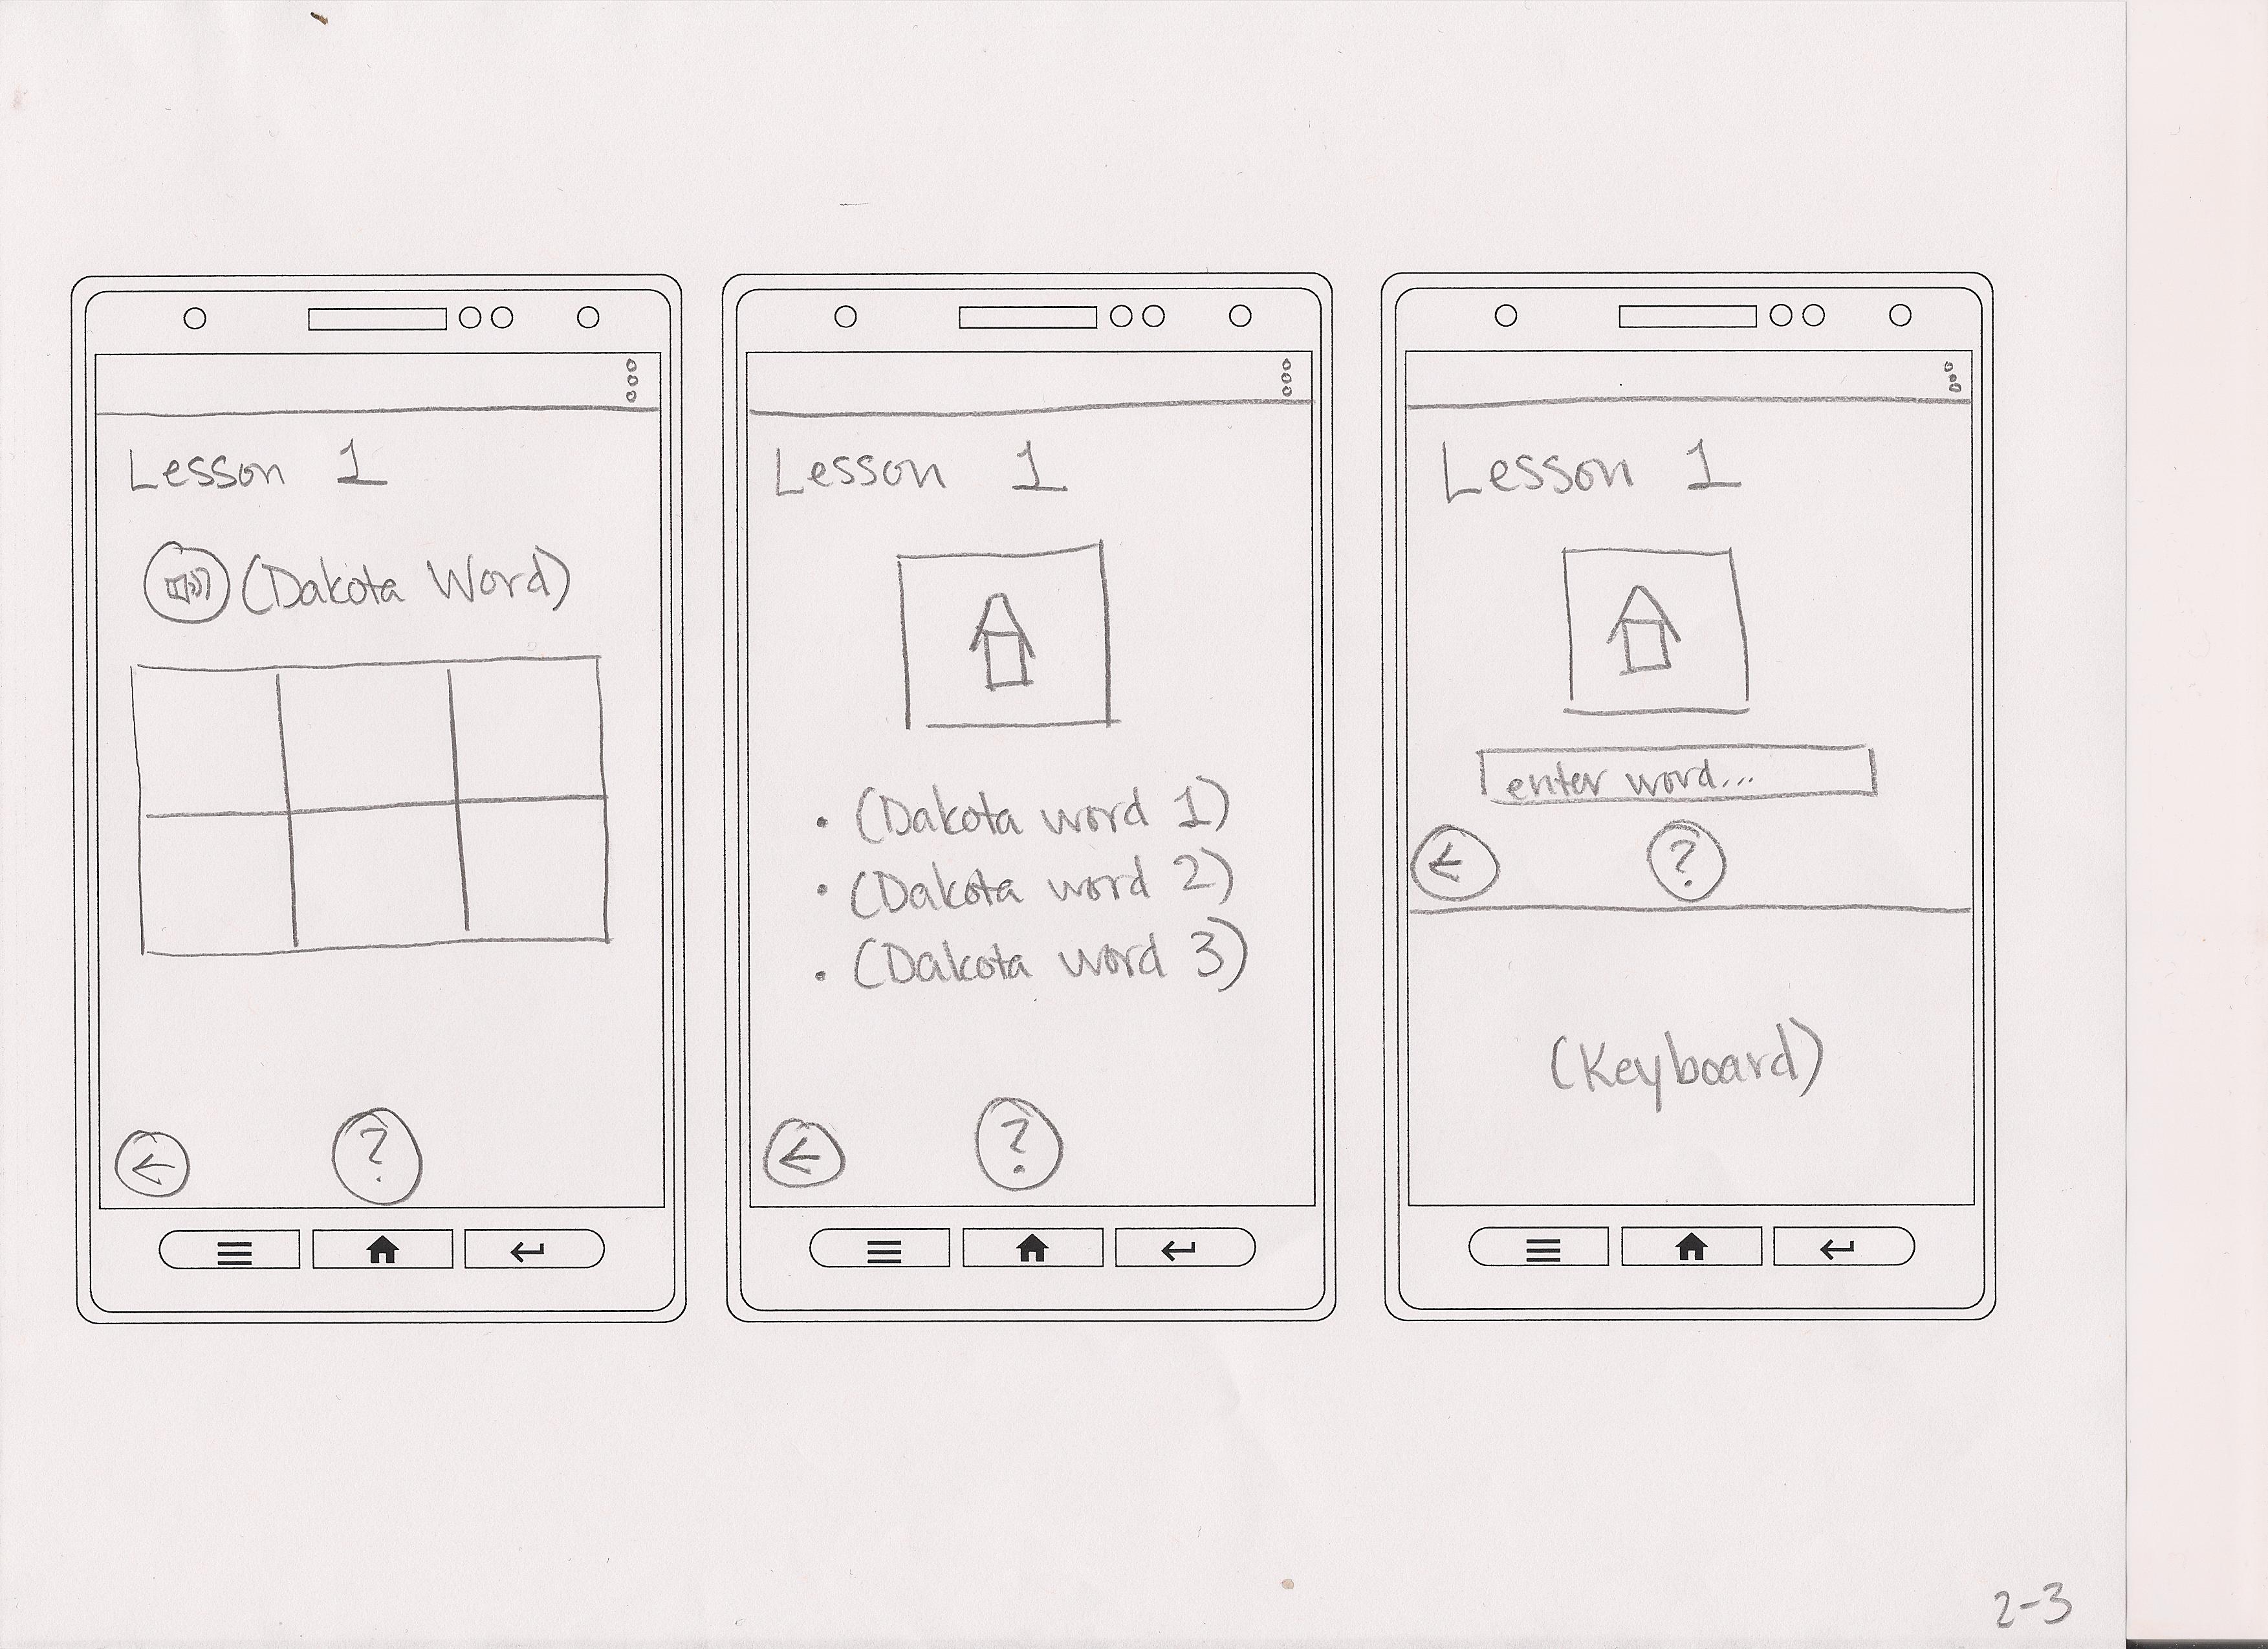 Lesson 1
(Dakota Word)
?
Lesson 1
• (Dakota word 1)
• (Dakota word 2)
• (Dakota word 3)
?
Lesson 1
enter word...
?
(Keyboard)
2-3